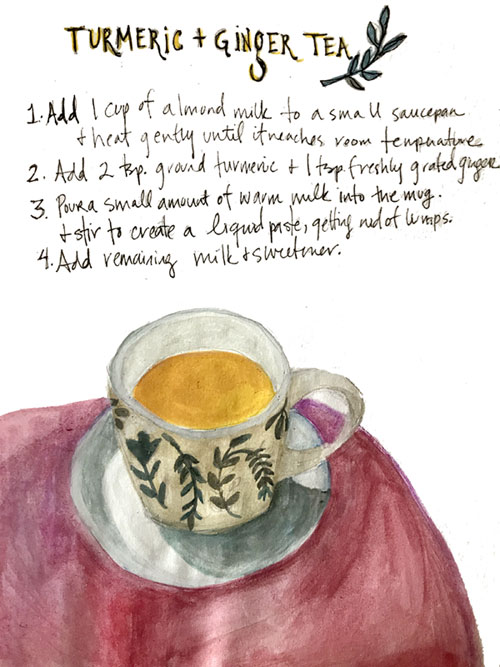 TURMERIC + GINGER TEA
1. Add 1 cup of almond milk to a small saucepan
+ heat gently until it reaches room temperature.
2. Add 2 tsp. ground turmeric + 1 tsp. freshly grated ginger
3. Pour a small amount of warm milk into the mug.
+ stir to create a liquid paste, getting rid of lumps.
4. Add remaining milk + sweetener.